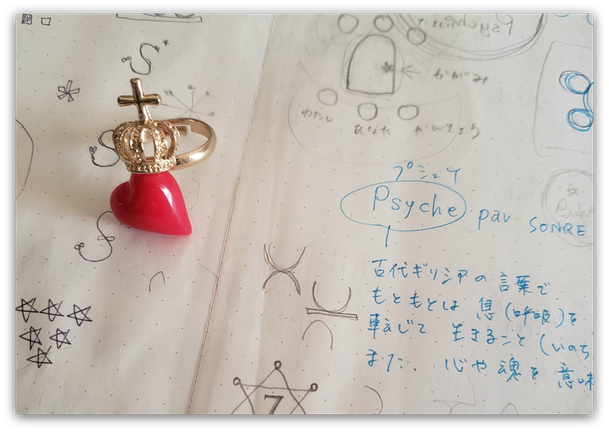 かがみ
わたし あなた かんきょう
プシュケ
Psyche par SONRE
古代ギリシアの言葉で
もともとは 息(呼吸)を
転じて 生きること(いのち
また、心や魂を意味
7